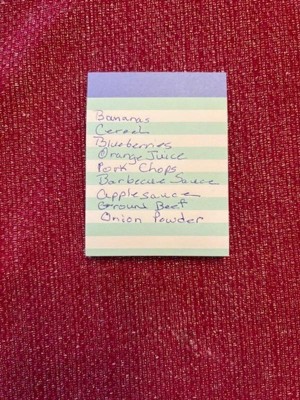 Bananas
Cereal
Blueberries
Orange Juice
Pork Chops
Barbecue Sauce
Applesauce
Ground Beef
Onion Powder